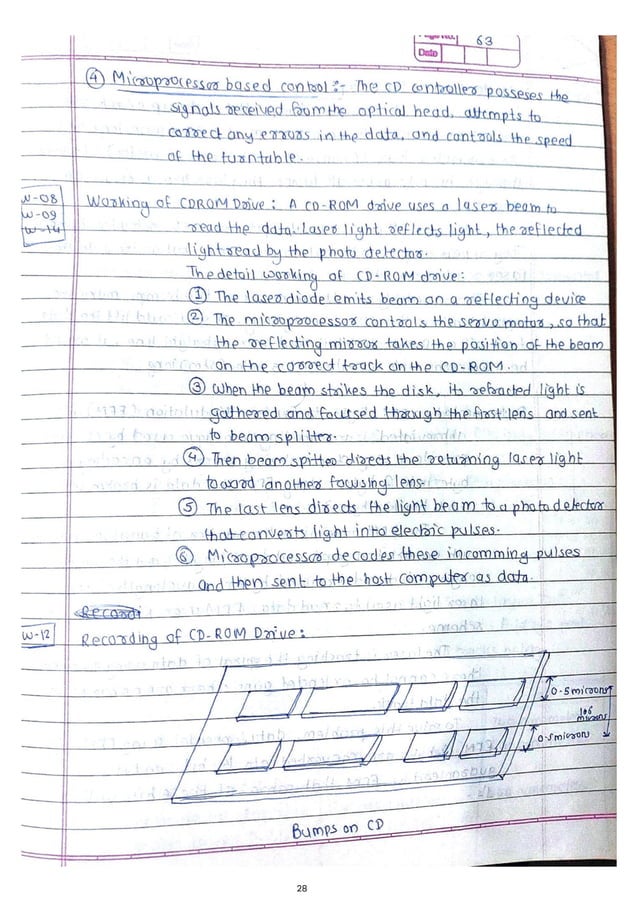 Page No. 63
Date
④ Microprocessor based control :- The CD controller posseses the
signals received from the optical head, attempts to
correct any errors in the data, and controls the speed
of the turntable.
W-08
W-09
W-14
Working of CDROM Drive : A CD-ROM drive uses a laser beam to
read the data. Laser light reflects light, the reflected
light read by the photo detector.
The detail working of CD-ROM drive:
① The laser diode emits beam on a reflecting device
② The microprocessor controls the servo motor, so that
the reflecting mirror takes the position of the beam
on the correct track on the CD-ROM.
③ when the beam strikes the disk, its refracted light is
gathered and focused through the first lens and sent
to beam splitter.
④ Then beam spitter directs the returning laser light
toward another focusing lens.
⑤ The last lens directs the light beam to a photo detector
that converts light into electric pulses.
⑥ Microprocessor decodes these incomming pulses
and then sent to the host computer as data.
W-12
Recording of CD-ROM Drive :
0.5 microns
microns
0.5 micron
Bumps on CD
28